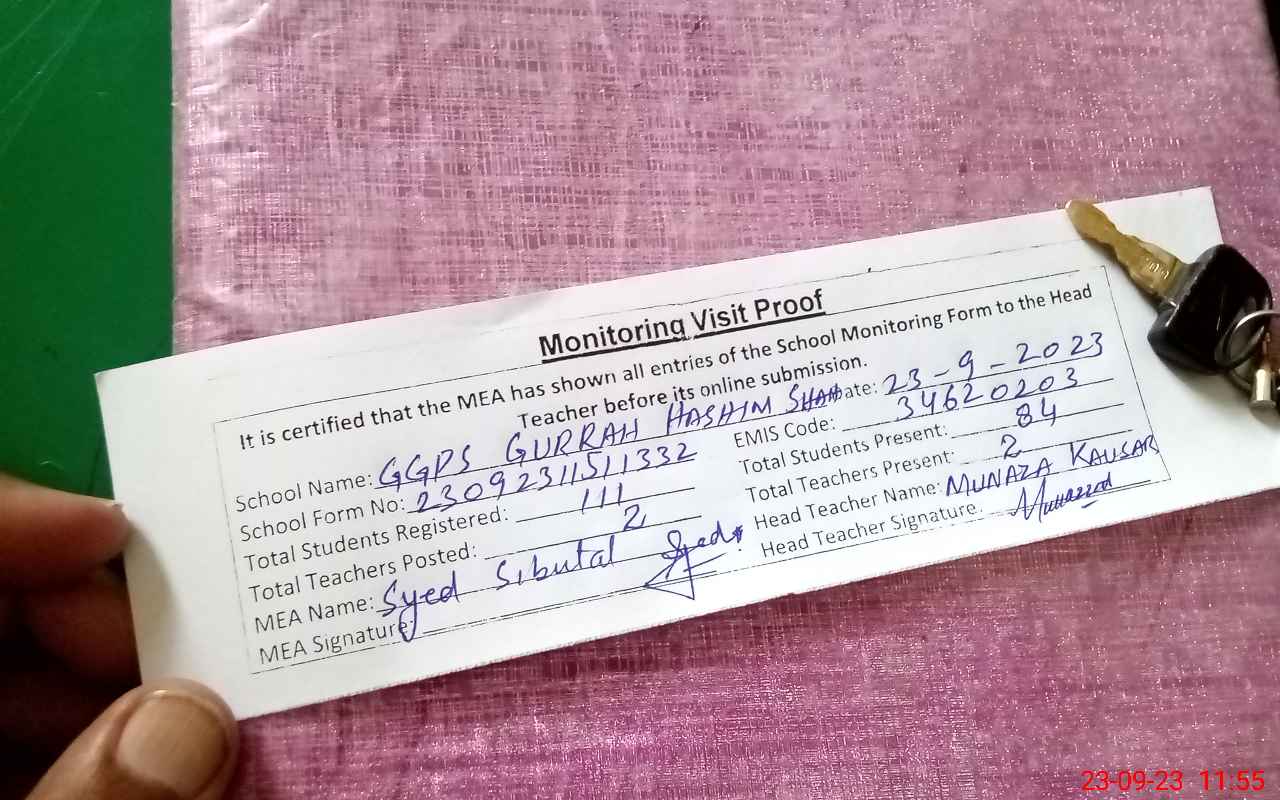 Monitoring Visit Proof
It is certified that the MEA has shown all entries of the School Monitoring Form to the Head
Teacher before its online submission.
School Name: GGPS GURRAH HASHIM SHAH Date: 23-9-2023
School Form No: 23092311511332 EMIS Code: 34620203
Total Students Registered: 111 Total Students Present: 84
Total Teachers Posted: 2 Total Teachers Present: 2
MEA Name: Syed Sibutal Head Teacher Name: MUNAZA KAUSAR
MEA Signature: Head Teacher Signature.
23-09-23 11:55